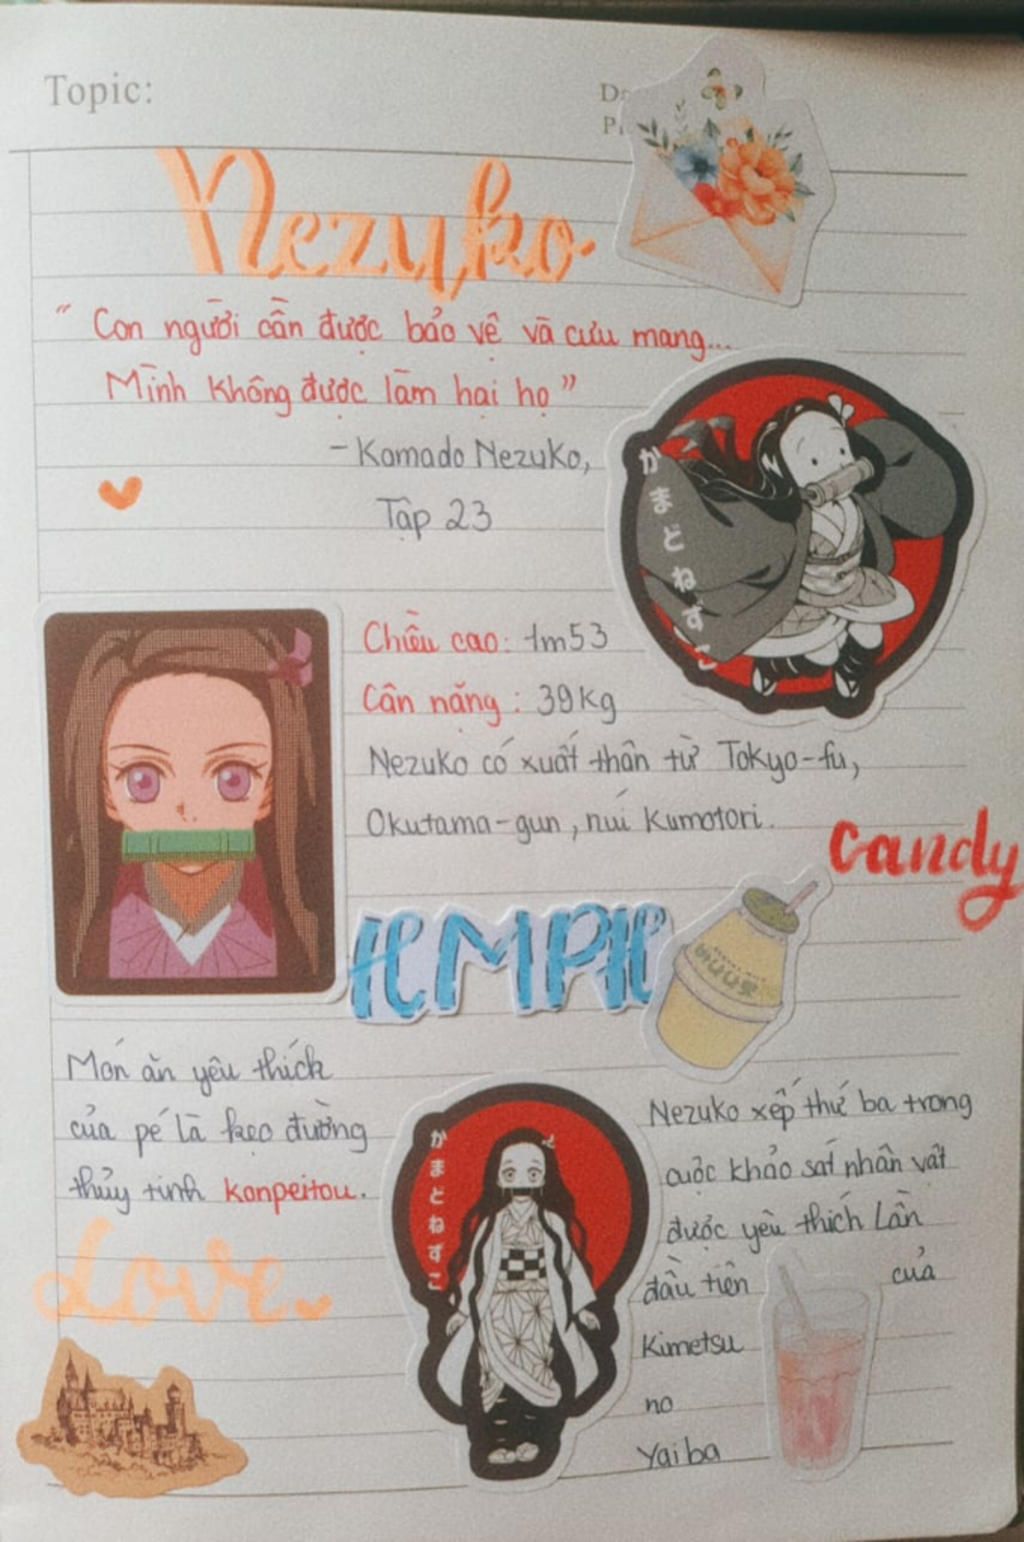 Topic:
Nezuko
“ Con người cần được bảo vệ và cưu mang...
Mình không được làm hại họ ”
- Kamado Nezuko,
Tập 23
かまどねずこ
Chiều cao: 1m53
Cân nặng : 39kg
Nezuko có xuất thân từ Tokyo-fu,
Okutama-gun, núi Kumotori.
candy
Món ăn yêu thích
của pé là kẹo đường
thủy tinh konpeitou.
Love
かまどねずこ
Nezuko xếp thứ ba trong
cuộc khảo sát nhân vật
được yêu thích lần
đầu tiên của
Kimetsu
no
Yaiba